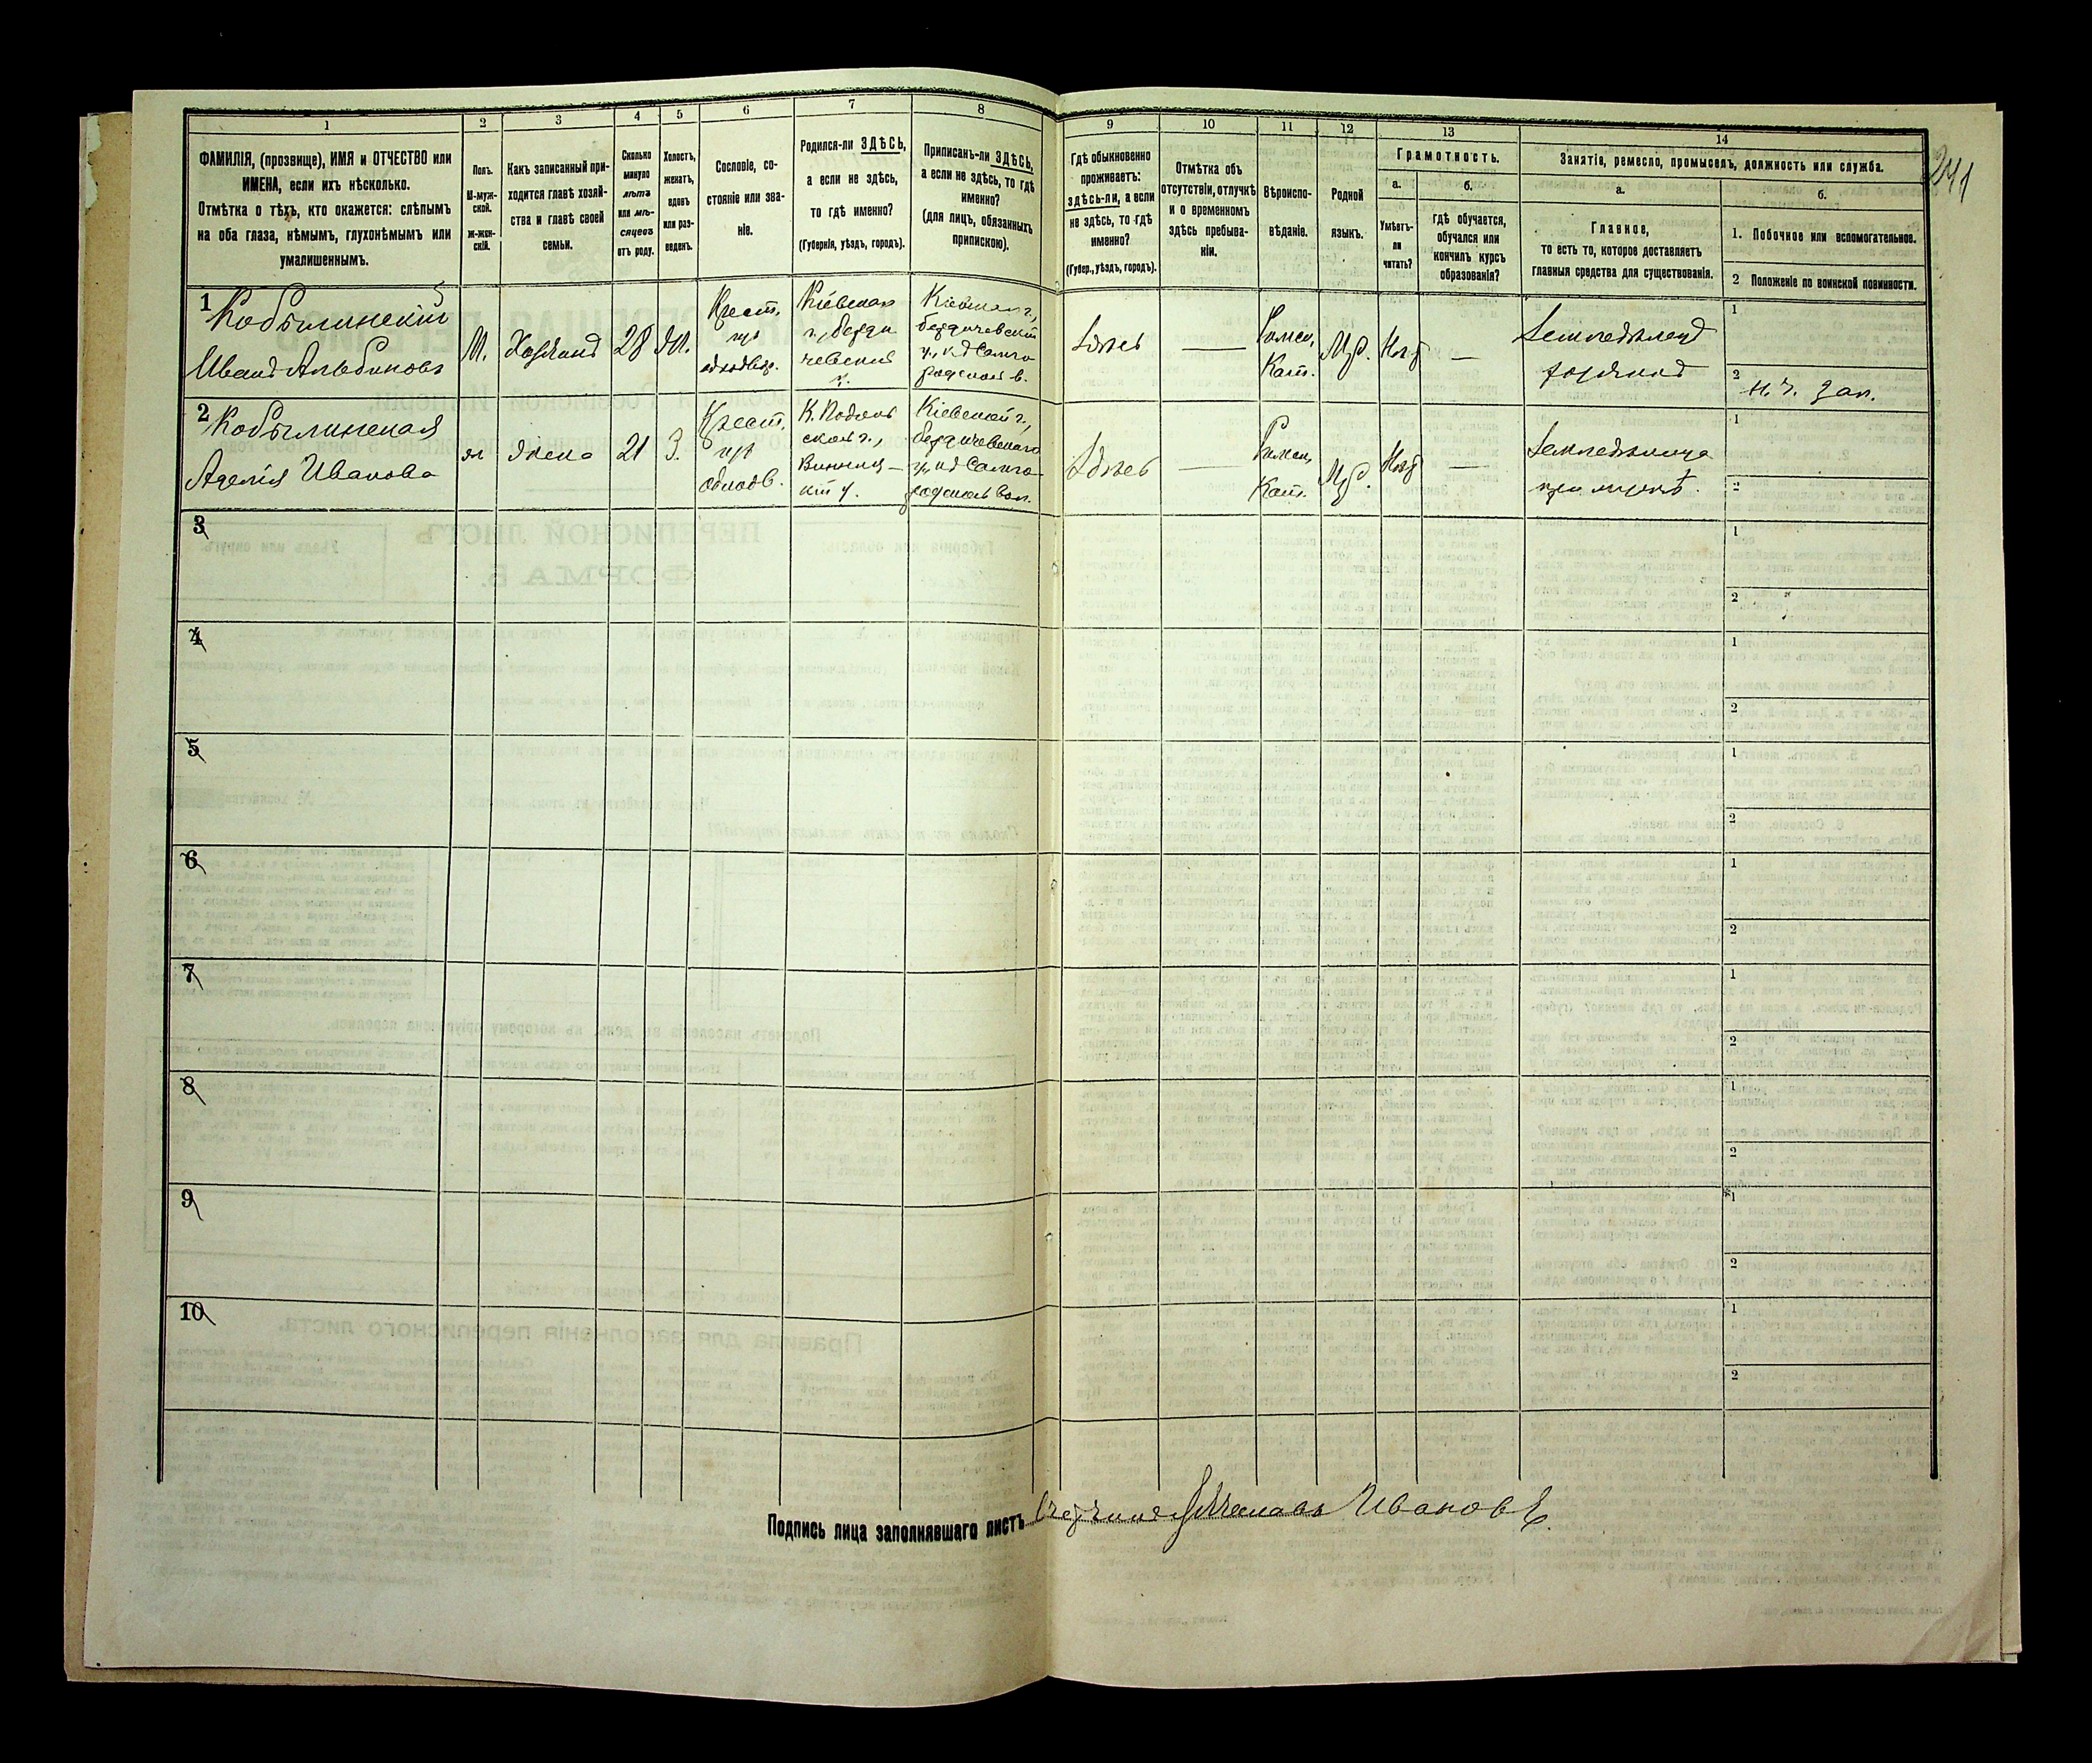 1
2
3
4
5
6
7
8
9
10
11
12
13
14
ФАМИЛІЯ, (прозвище), ИМЯ и ОТЧЕСТВО или
ИМЕНА, если ихъ нѣсколько.
Отмѣтка о тѣхъ, кто окажется: слѣпымъ
на оба глаза, нѣмымъ, глухонѣмымъ или
умалишеннымъ.
Полъ.
М-муж-
ской.
ж-жен-
скій.
Какъ записанный при-
ходится главѣ хозяй-
ства и главѣ своей
семьи.
Сколько
минуло
лѣтъ
или мѣ-
сяцевъ
отъ роду.
Холостъ,
женатъ,
вдовъ
или раз-
веденъ.
Сословіе, со-
стояніе или зва-
ніе.
Родился-ли ЗДѢСЬ,
а если не здѣсь,
то гдѣ именно?
(Губернія, уѣздъ, городъ).
Приписанъ-ли ЗДѢСЬ,
а если не здѣсь, то гдѣ
именно?
(для лицъ, обязанныхъ
припискою).
Гдѣ обыкновенно
проживаетъ:
здѣсь-ли, а если
не здѣсь, то гдѣ
именно?
(Губер., уѣздъ, городъ).
Отмѣтка объ
отсутствіи, отлучкѣ
и о временномъ
здѣсь пребыва-
ніи.
Вѣроиспо-
вѣданіе.
Родной
языкъ.
Грамотность.
а.
Умѣетъ-
ли
читать?
б.
гдѣ обучается,
обучался или
кончилъ курсъ
образованія?
Занятіе, ремесло, промыселъ, должность или служба.
а.
Главное,
то есть то, которое доставляетъ
главныя средства для существованія.
б.
1. Побочное или вспомогательное.
2 Положеніе по воинской повинности.
241
1
Кобылинскій
Иванъ Альбиновъ
М.
Хозяинъ
28
Жен.
Крест.
изъ
однодвор.
Кіевская
г., Берди
чевскій
у.
Кіевская г.,
бердичевскій
у.,
родская в.
Здѣсь
—
Римск.
Кат.
Нѣтъ
—
Земледѣлецъ
хозяинъ
1
2
2
Кобылинская
Аделія Иванова
ж
Жена
21
З.
Крест.
изъ
однодв.
Подоль
ской г.,
Винниц-
кій у.
Кіевской г.,
бердичевскаго
родской вол.
Здѣсь
—
Римск.
Кат.
Нѣтъ
—
Земледѣлица
при мужѣ.
1
2
3
1
2
4
1
2
5
1
2
6
1
2
7
1
2
8
1
2
9
1
2
10
1
2
Подпись лица заполнявшаго листъ
Ивановъ